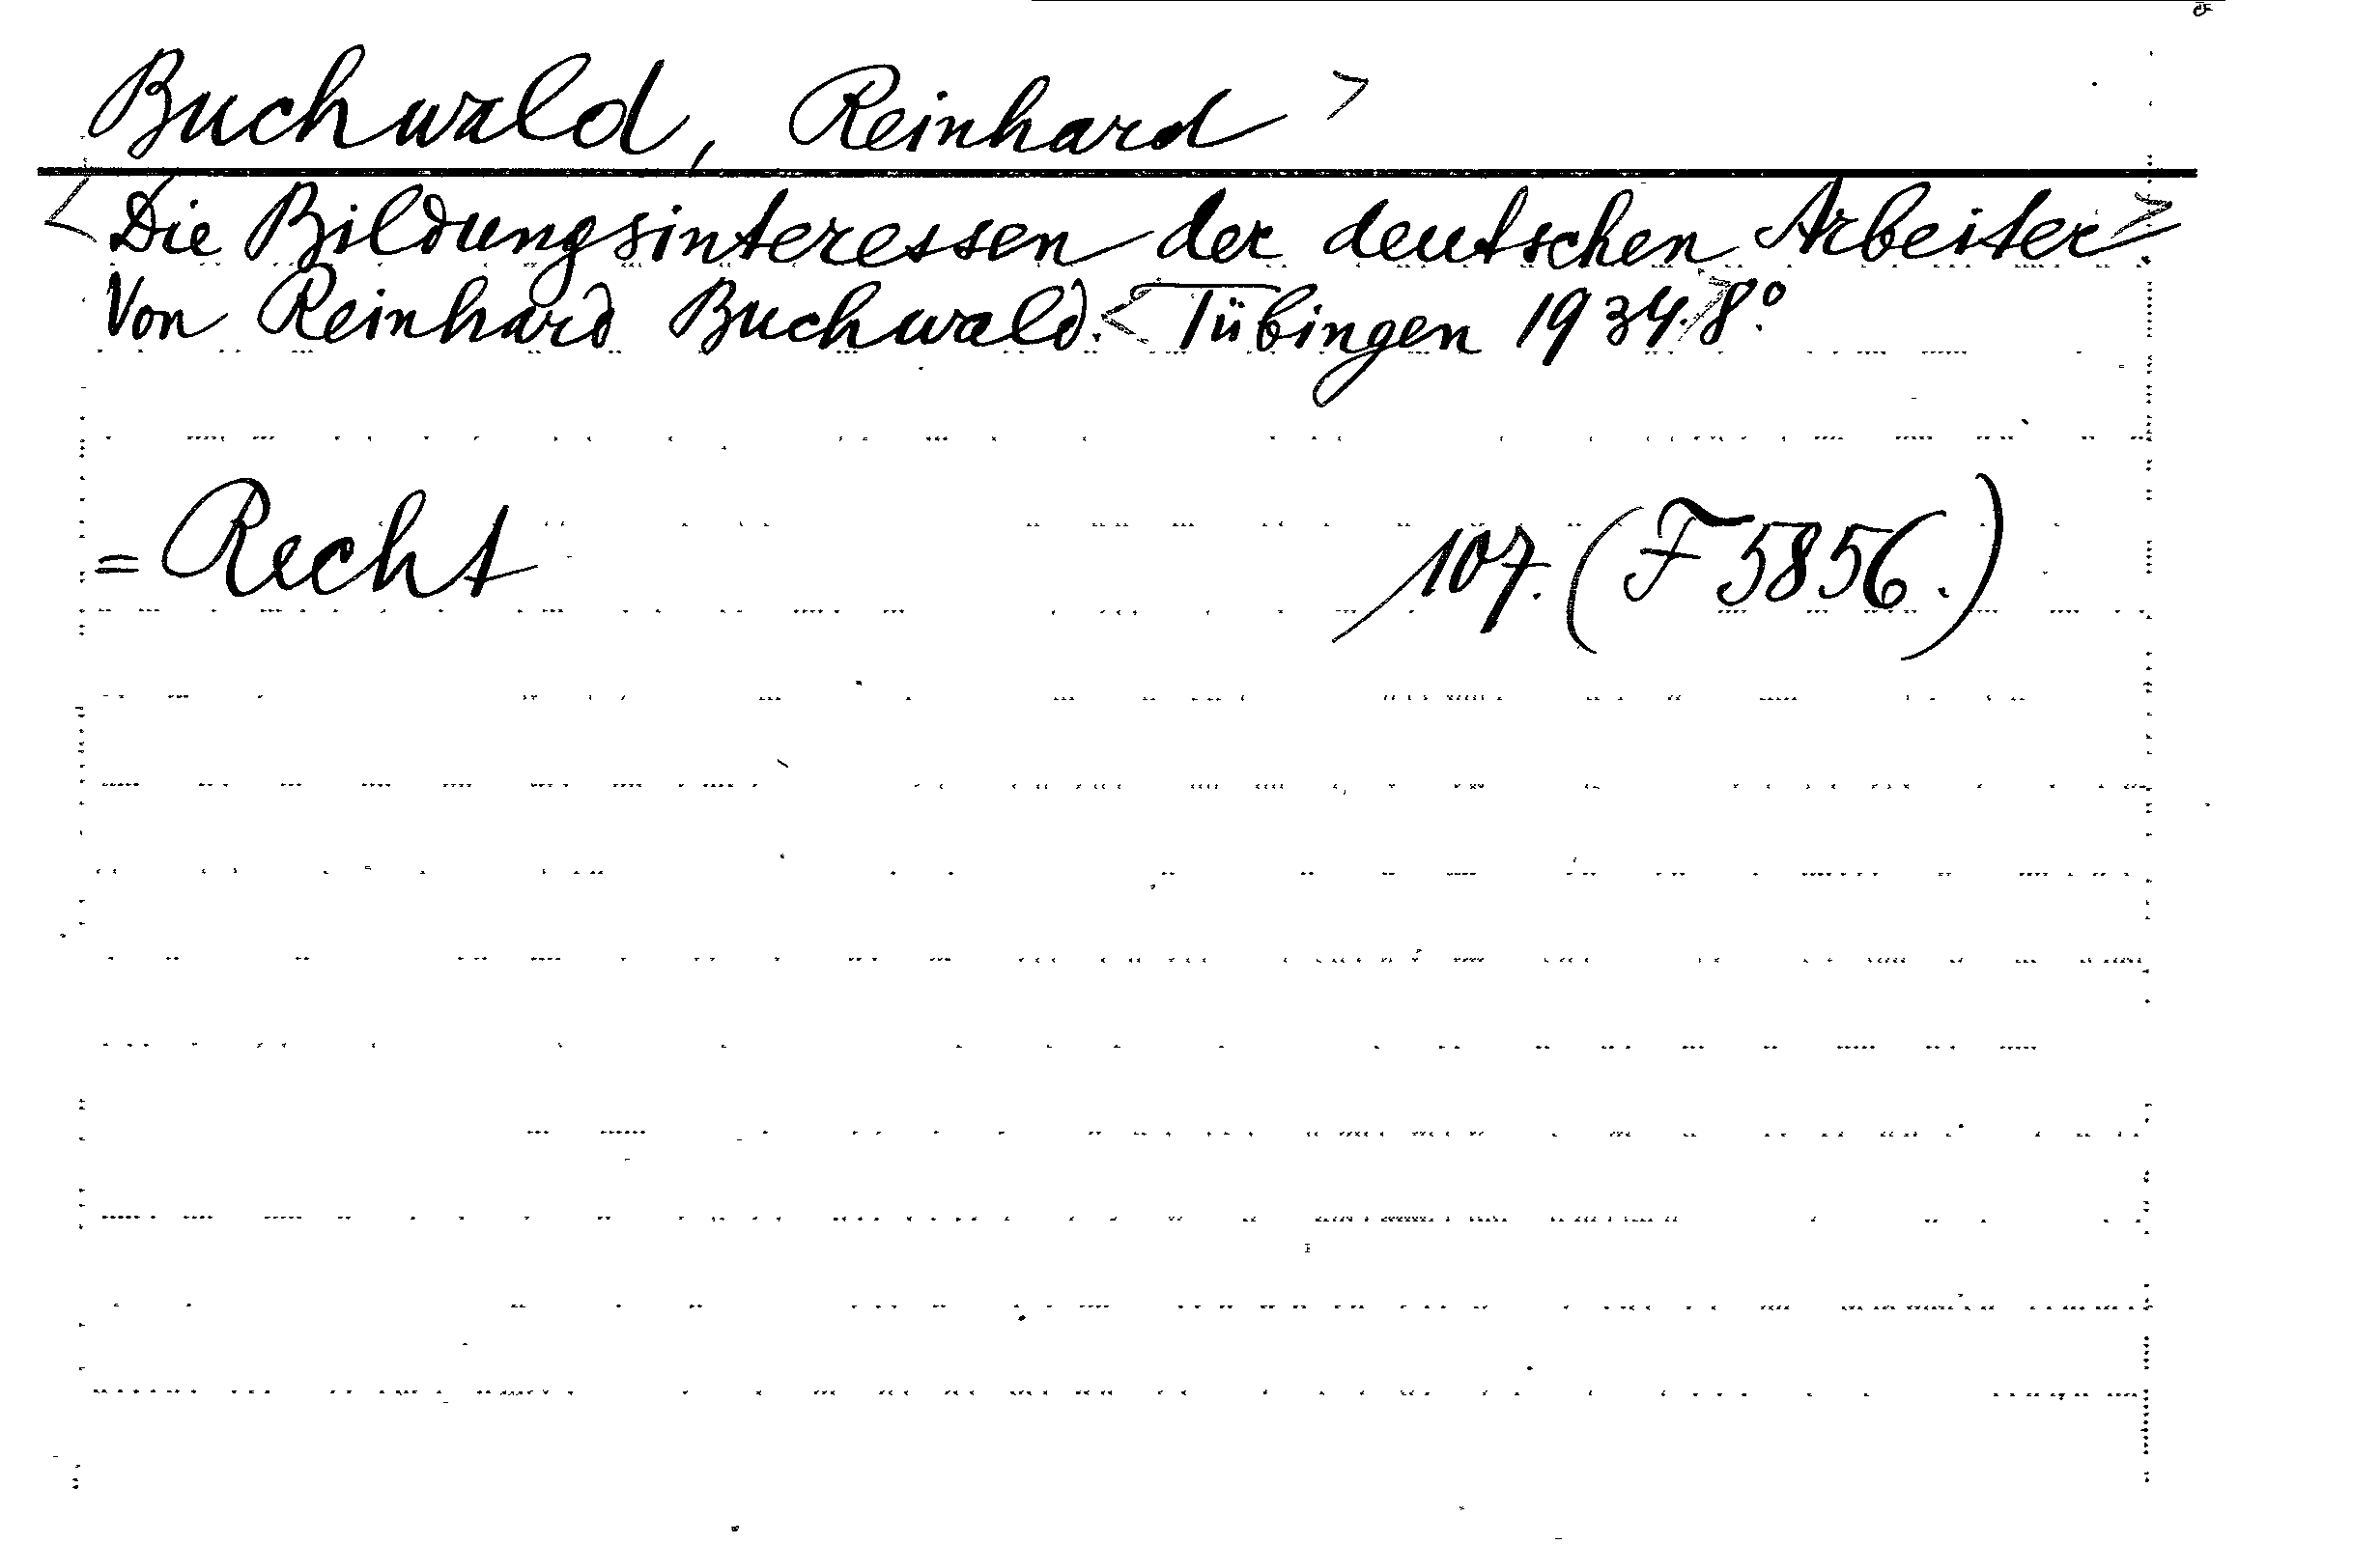 Buchwald, Reinhard >
< Die Bildungsinteressen der deutschen Arbeiter >
Von Reinhard Buchwald. < Tübingen 1934. > 8.°
= Recht 107. (F 5856.)